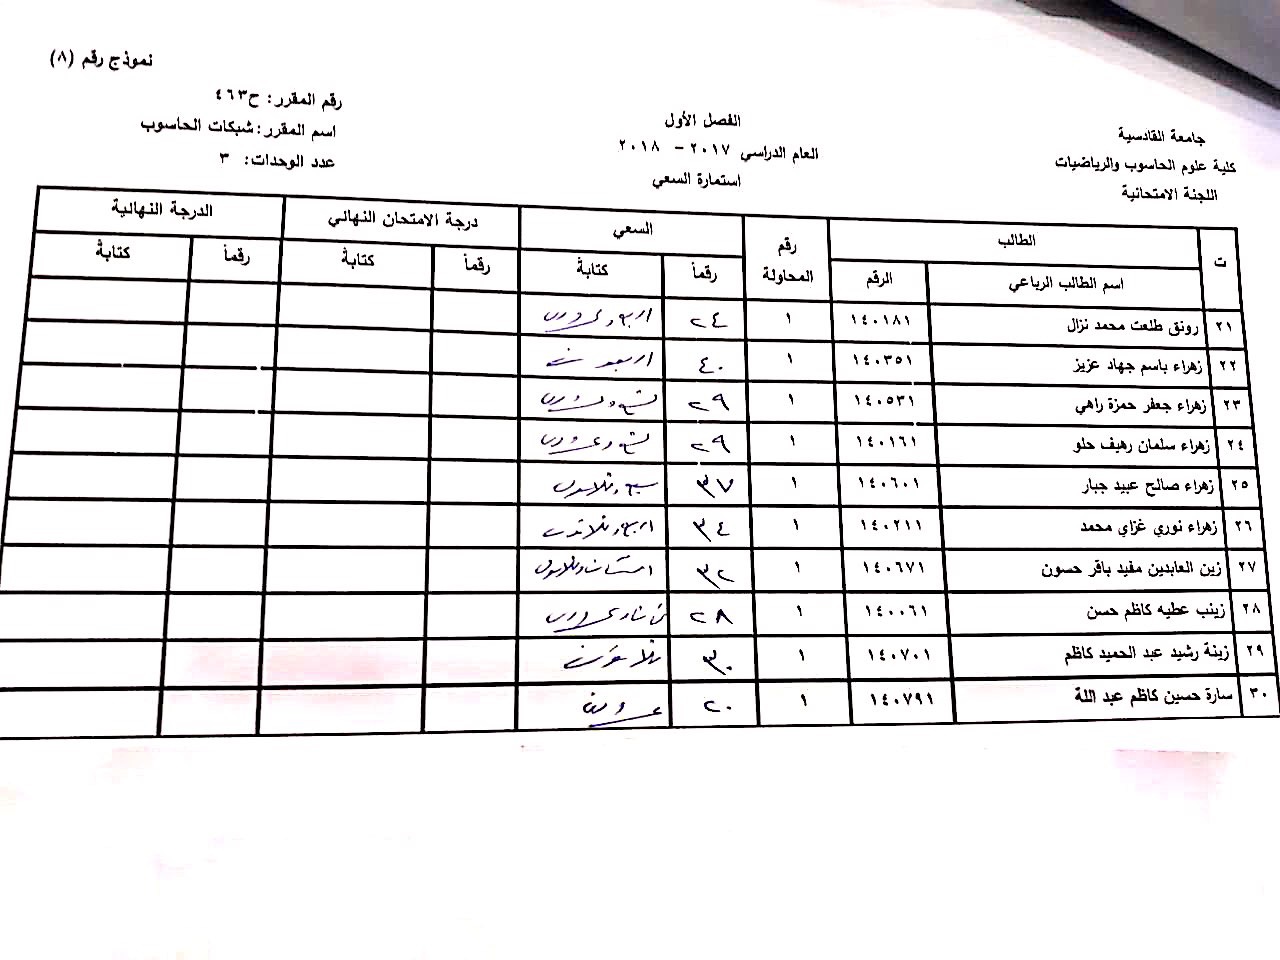 نموذج رقم (٨)
جامعة القادسية
كلية علوم الحاسوب والرياضيات
اللجنة الامتحانية
الفصل الأول
العام الدراسي ٢٠١٧ - ٢٠١٨
استمارة السعي
رقم المقرر: ح٤٦٣
اسم المقرر: شبكات الحاسوب
عدد الوحدات: ٣
ت الطالب رقم المحاولة السعي درجة الامتحان النهائي الدرجة النهائية
اسم الطالب الرباعي الرقم رقماً كتابةً رقماً كتابةً رقماً كتابةً
٢١ رونق طلعت محمد نزال ١٤٠١٨١ ١ ٢٤ اربع وعشرون
٢٢ زهراء باسم جهاد عزيز ١٤٠٣٥١ ١ ٤٠ اربعون
٢٣ زهراء جعفر حمزة راهي ١٤٠٥٣١ ١ ٢٩ تسع وعشرون
٢٤ زهراء سلمان رهيف حلو ١٤٠١٦١ ١ ٢٩ تسع وعشرون
٢٥ زهراء صالح عبيد جبار ١٤٠٦٠١ ١ ٣٧ سبع وثلاثون
٢٦ زهراء نوري غزاي محمد ١٤٠٢١١ ١ ٣٤ اربع وثلاثون
٢٧ زين العابدين مفيد باقر حسون ١٤٠٦٧١ ١ ٣٢ اثنان وثلاثون
٢٨ زينب عطيه كاظم حسن ١٤٠٠٦١ ١ ٢٨ ثمان وعشرون
٢٩ زينة رشيد عبد الحميد كاظم ١٤٠٧٠١ ١ ٣٠ ثلاثون
٣٠ سارة حسين كاظم عبد اللة ١٤٠٧٩١ ١ ٢٠ عشرون